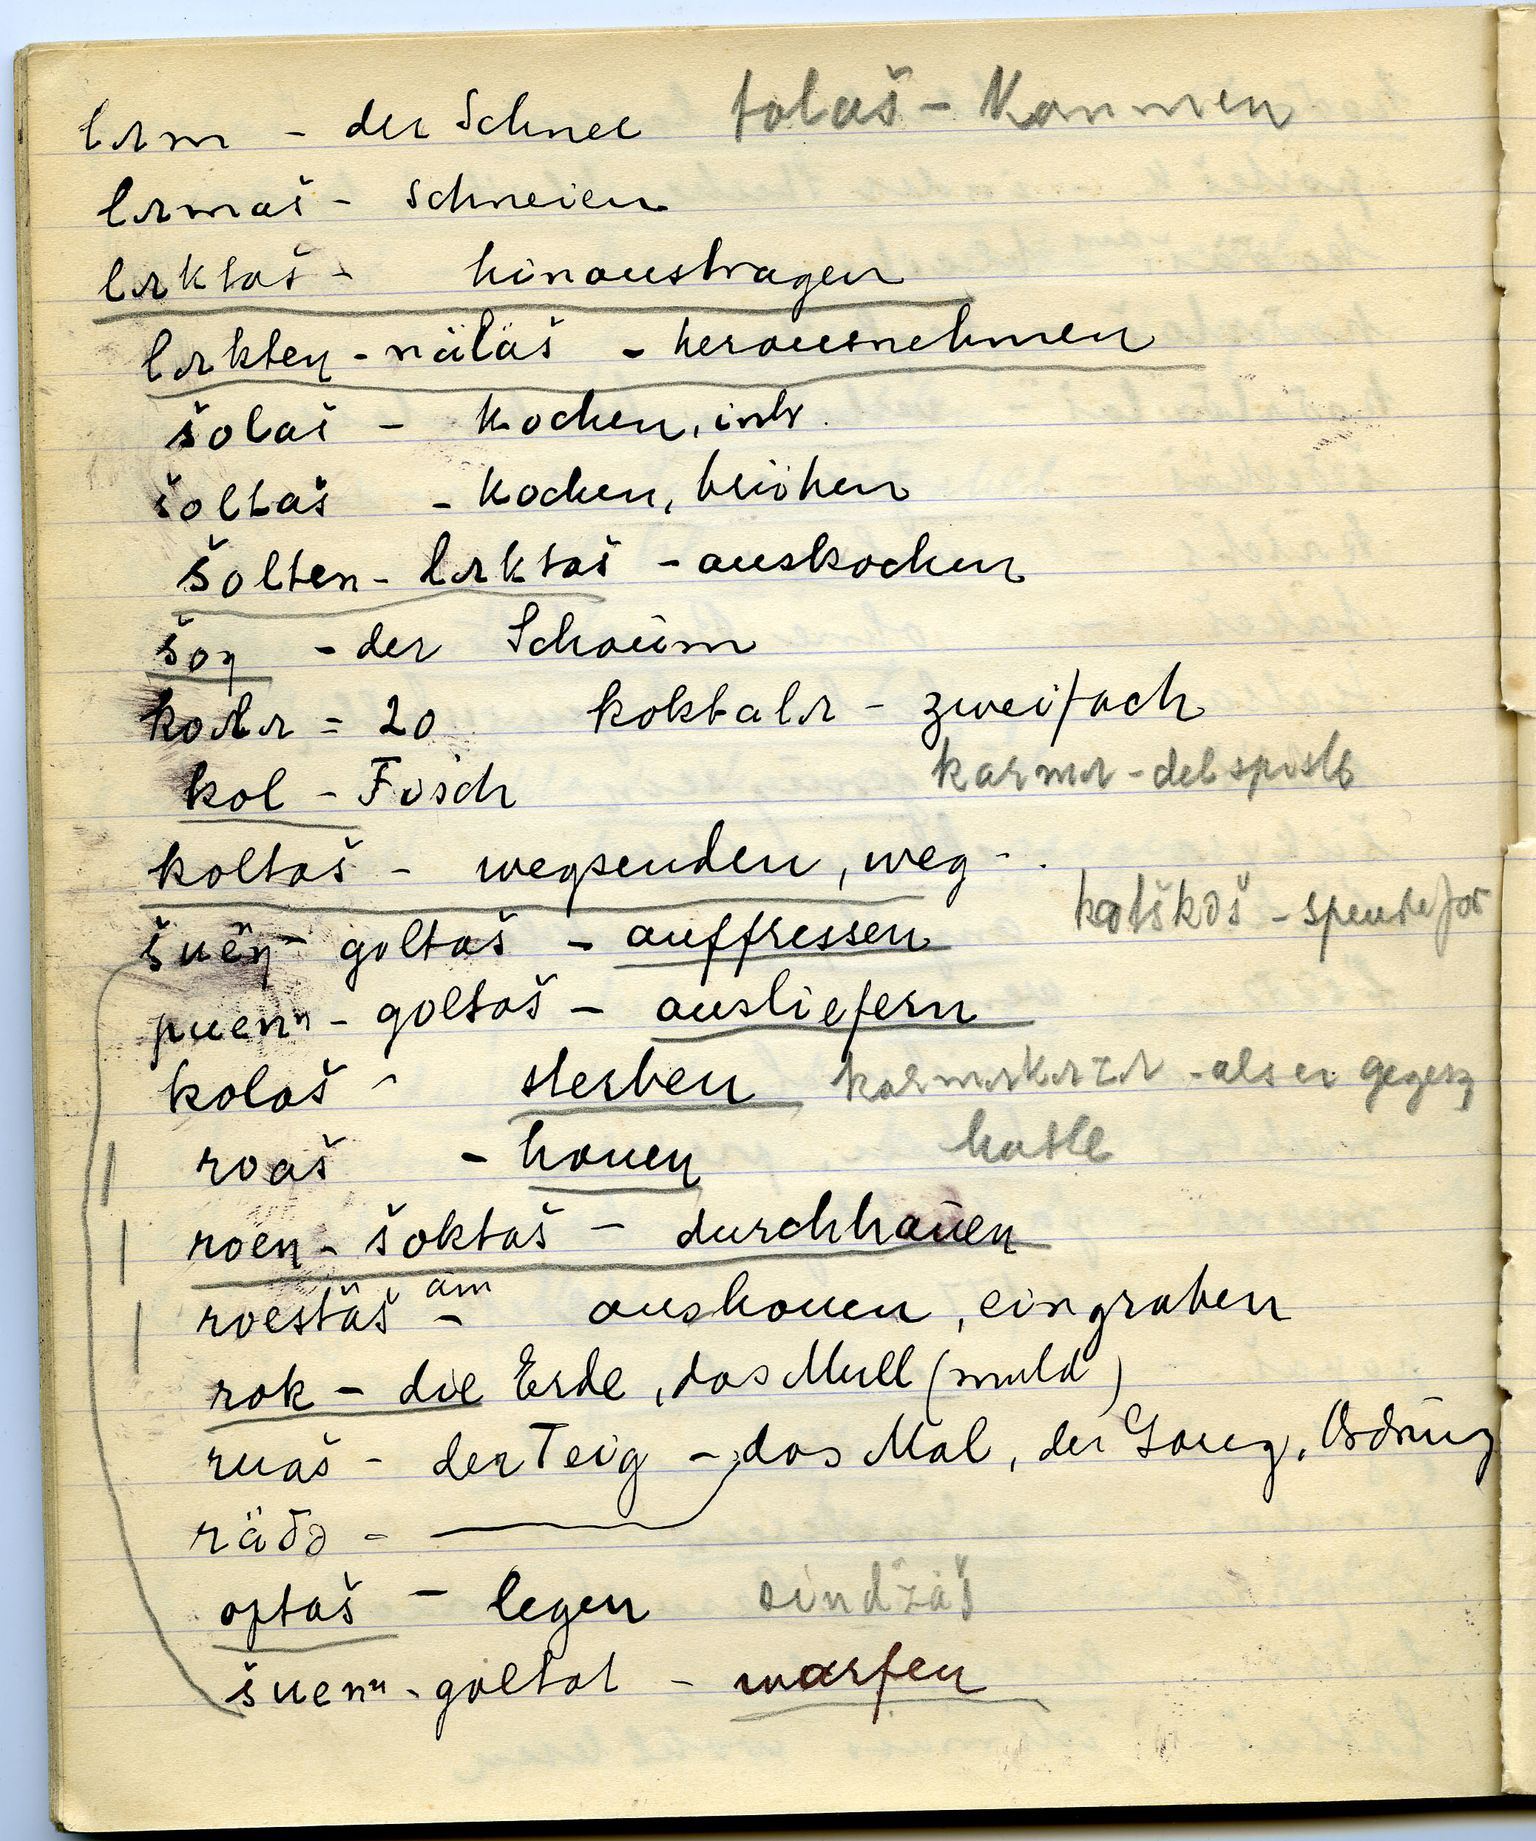 lъm - der Schnee tolaš - Kommen
lъmaš - schneien
lъktaš - hinaustragen
lъkten - näläš - herausnehmen
šolaš - kochen, intr.
šoltaš - kochen, brühen
šolten - lъktaš - auskochen
šoŋ - der Schaum
koktalъ - zweifach
kol - Fisch karmъ - det spiste
koltaš - wegsenden, weg - .
šuёŋ - goltaš - auffressen
puenⁿ - goltaš - ausliefern
kolaš - sterben - als er gegess
hatte
roaš - hauen
roen - šoktaš - durchhauen
roestäš äm - aushauen, eingraben
rok - die Erde, das Mull (muld)
ruaš - der Teig - das Mal, der Gang, Ordnung
räδə -
optaš - legen sindžaš
šuenⁿ - goltat - warfen